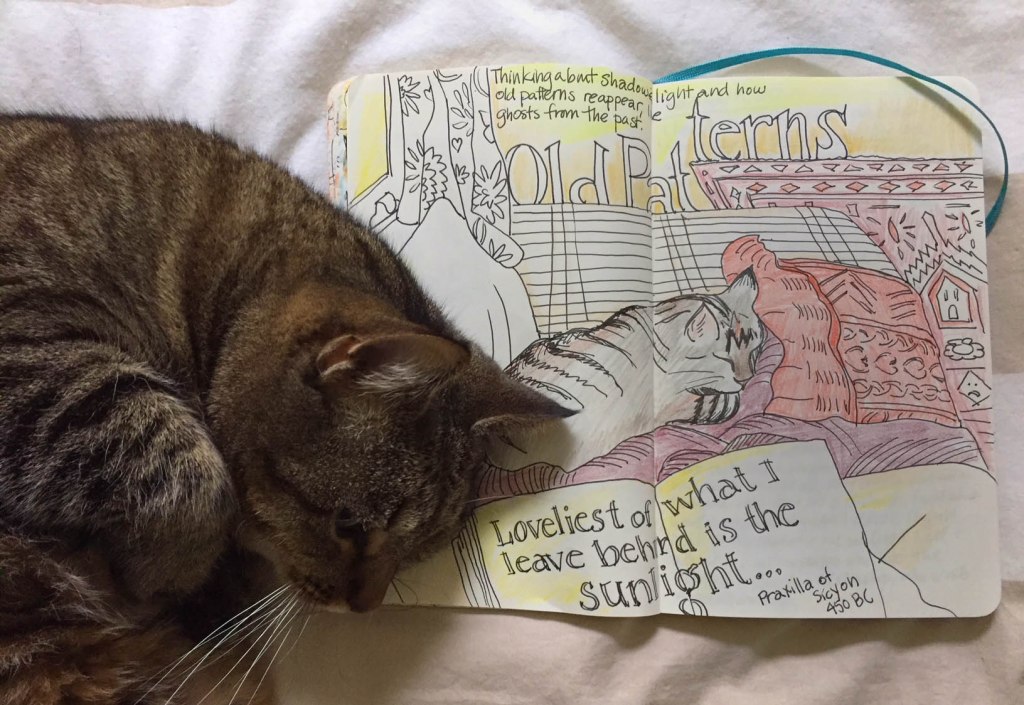 Thinking about shadow light and how
old patterns reappear, like
ghosts from the past.
Old Patterns
Loveliest of what I
leave behind is the
sunlight...
Praxilla of
Sicyon
450 BC